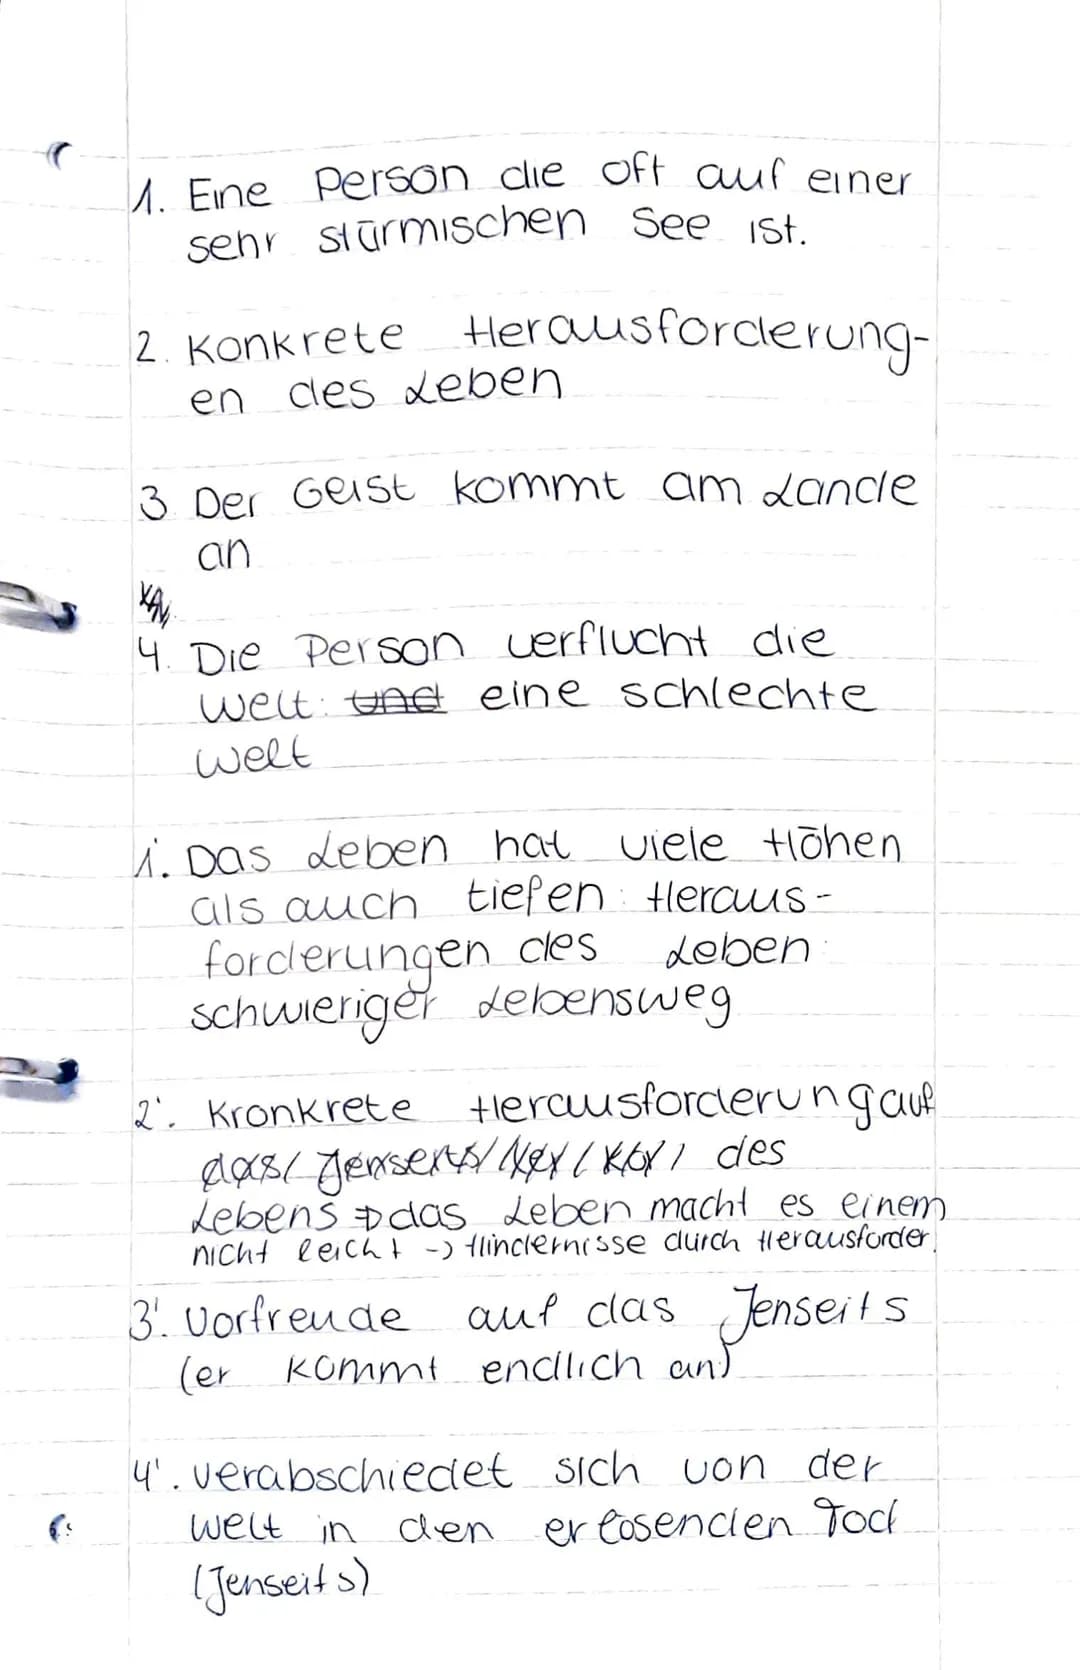 1. Eine Person die oft auf einer
sehr stürmischen See ist.
2. Konkrete Herausforderung-
en des Leben
3 Der Geist kommt am Lande
an
4. Die Person verflucht die
Welt: und eine schlechte
Welt
1'. Das Leben hat viele Höhen
als auch tiefen: Heraus-
forderungen des Leben:
schwieriger Lebensweg
2'. Kronkrete Herausforderung auf
das Jenseits des
Lebens ⇒ das Leben macht es einem
nicht leicht -> Hindernisse durch Herausforder.
3'. Vorfreude auf das Jenseits
(er kommt endlich an)
4'. verabschiedet sich von der
Welt in den erlösenden Tod
(Jenseits)